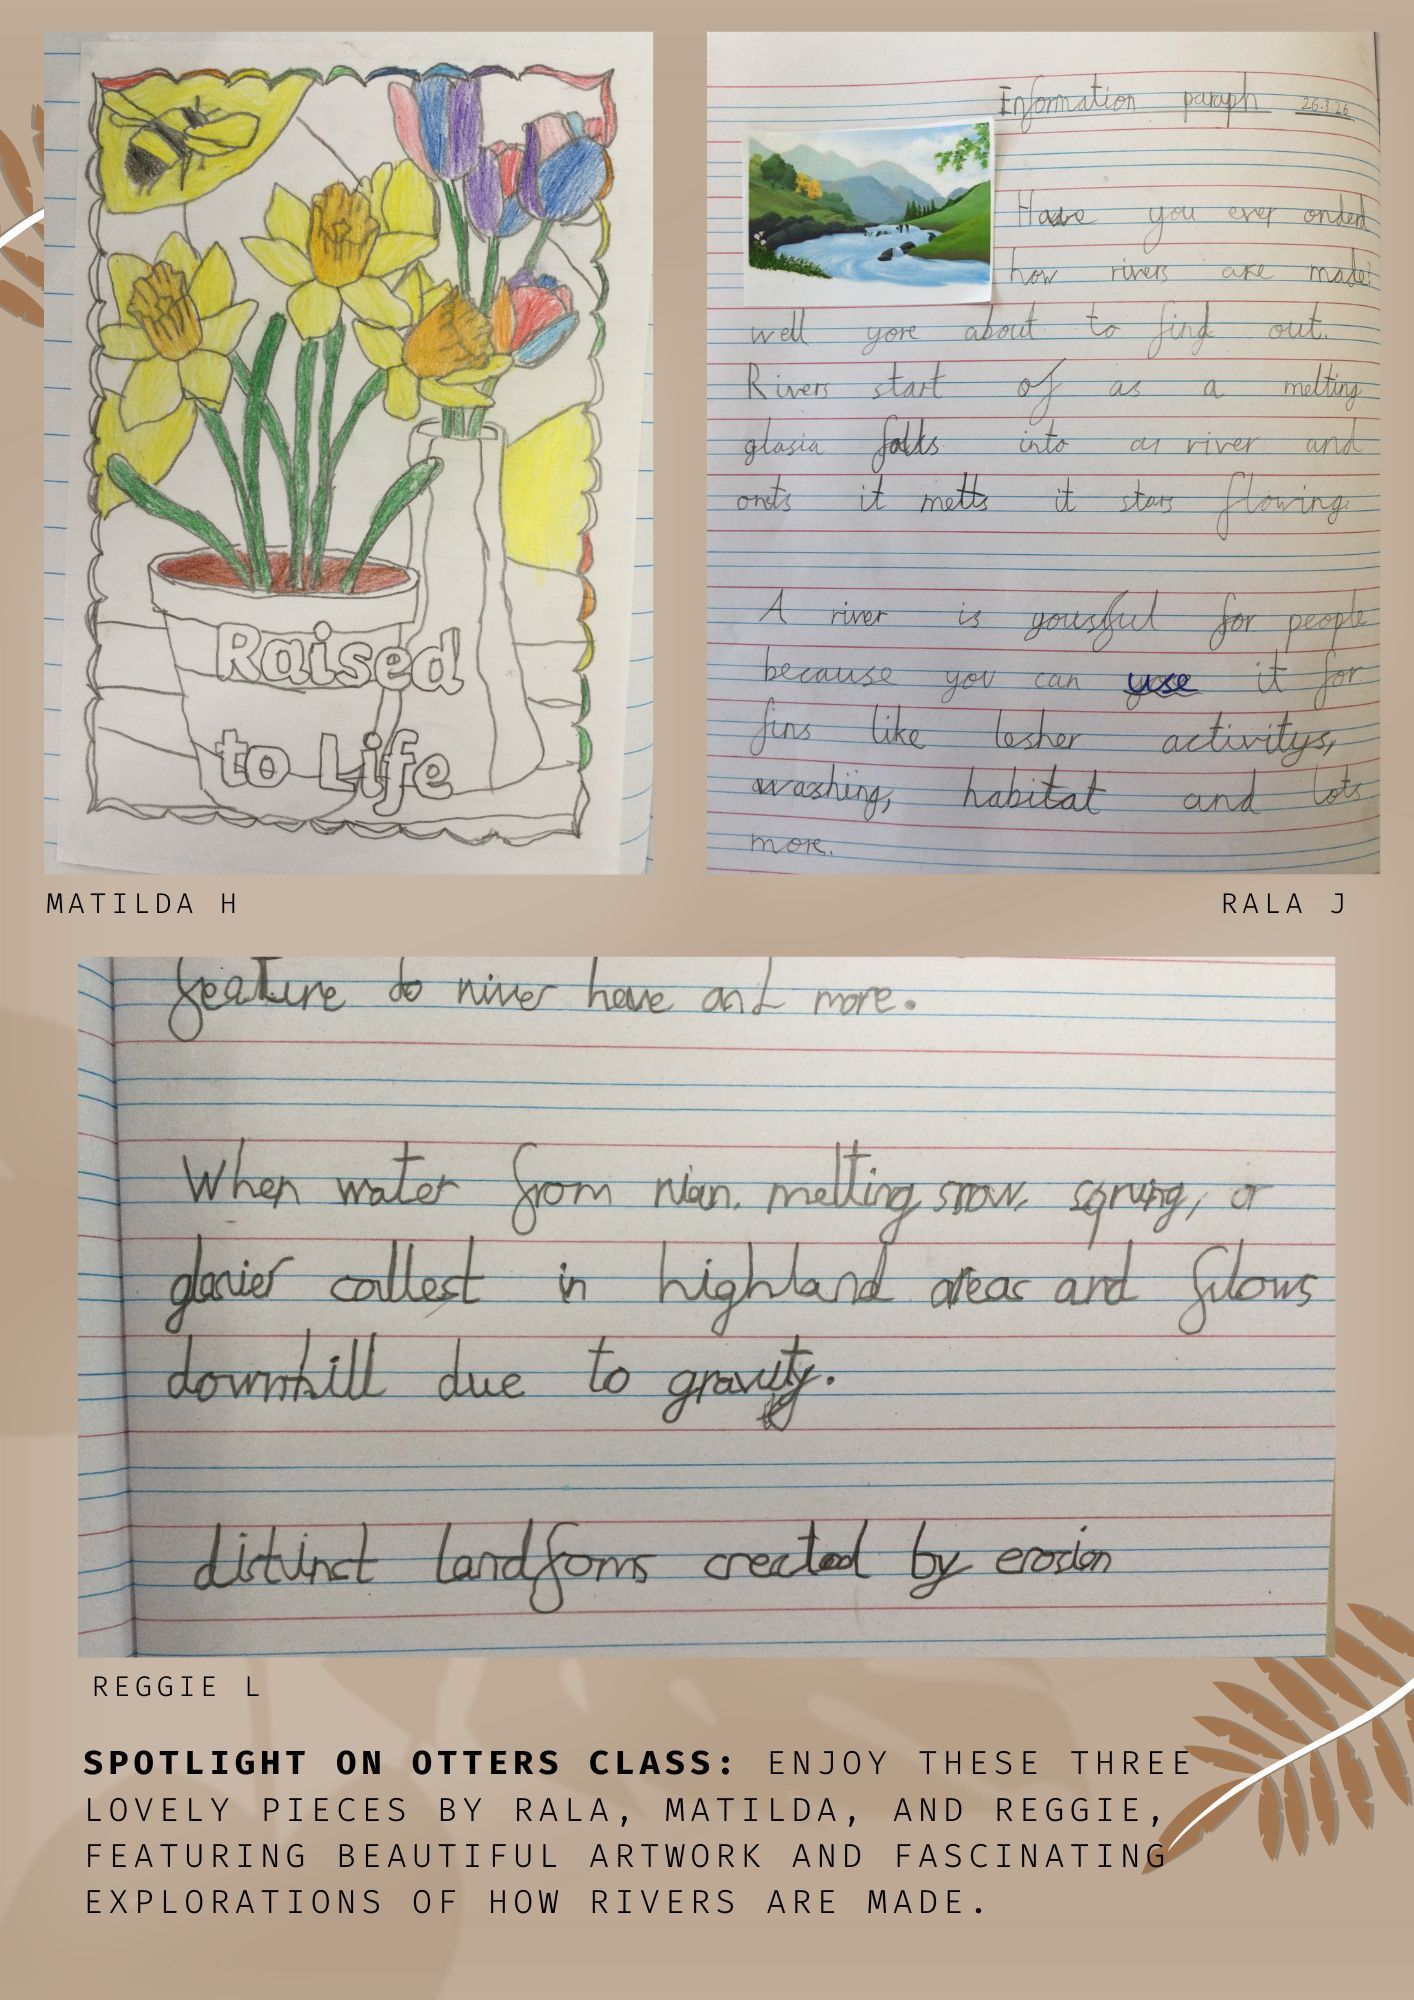 Raised
to Life
MATILDA H
Information paraph 26.3.26
Have you ever onded
how rivers are made?
well yore about to find out.
Rivers start of as a melting
glasia falls into a river and
onts it melts it stars flowing.
A river is yousful for people
because you can use it for
fins like lesher activitys,
washing, habitat and lots
more.
RALA J
feature do river have and more.
When water from rian, melting snow, sqruing, or
glacier collest in highland areas and filows
downhill due to gravity.
distinct landfoms created by erosion
REGGIE L
SPOTLIGHT ON OTTERS CLASS: ENJOY THESE THREE
LOVELY PIECES BY RALA, MATILDA, AND REGGIE,
FEATURING BEAUTIFUL ARTWORK AND FASCINATING
EXPLORATIONS OF HOW RIVERS ARE MADE.